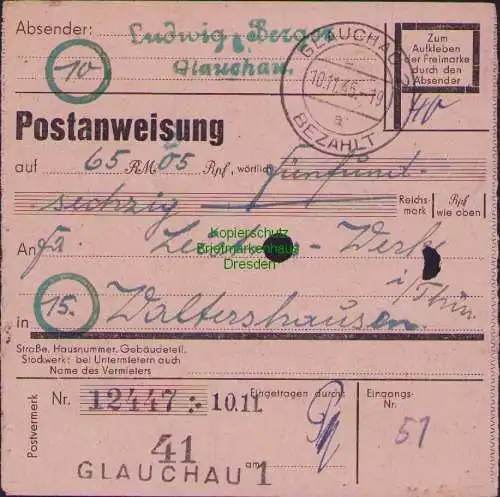 Absender: Ludwig Berger
Glauchau.
10
GLAUCHAU 2
10.11.45.-19
a
BEZAHLT
Zum
Aufkleben
der Freimarke
durch den
Absender
Postanweisung
auf 65 RM 05 Rpf, wörtlich Fünfund-
sechzig Reichs-
mark Rpf
wie oben
An Fa Werke
Kopierschutz
Briefmarkenhaus
Dresden
i/Thür.
15.
in Waltershausen.
Straße, Hausnummer, Gebäudeteil,
Stockwerk: bei Untermietern auch
Name des Vermieters
Postvermerk
Nr. 12447 10.11.
Eingetragen durch:
Eingangs-
Nr.
51
41
am
GLAUCHAU 1